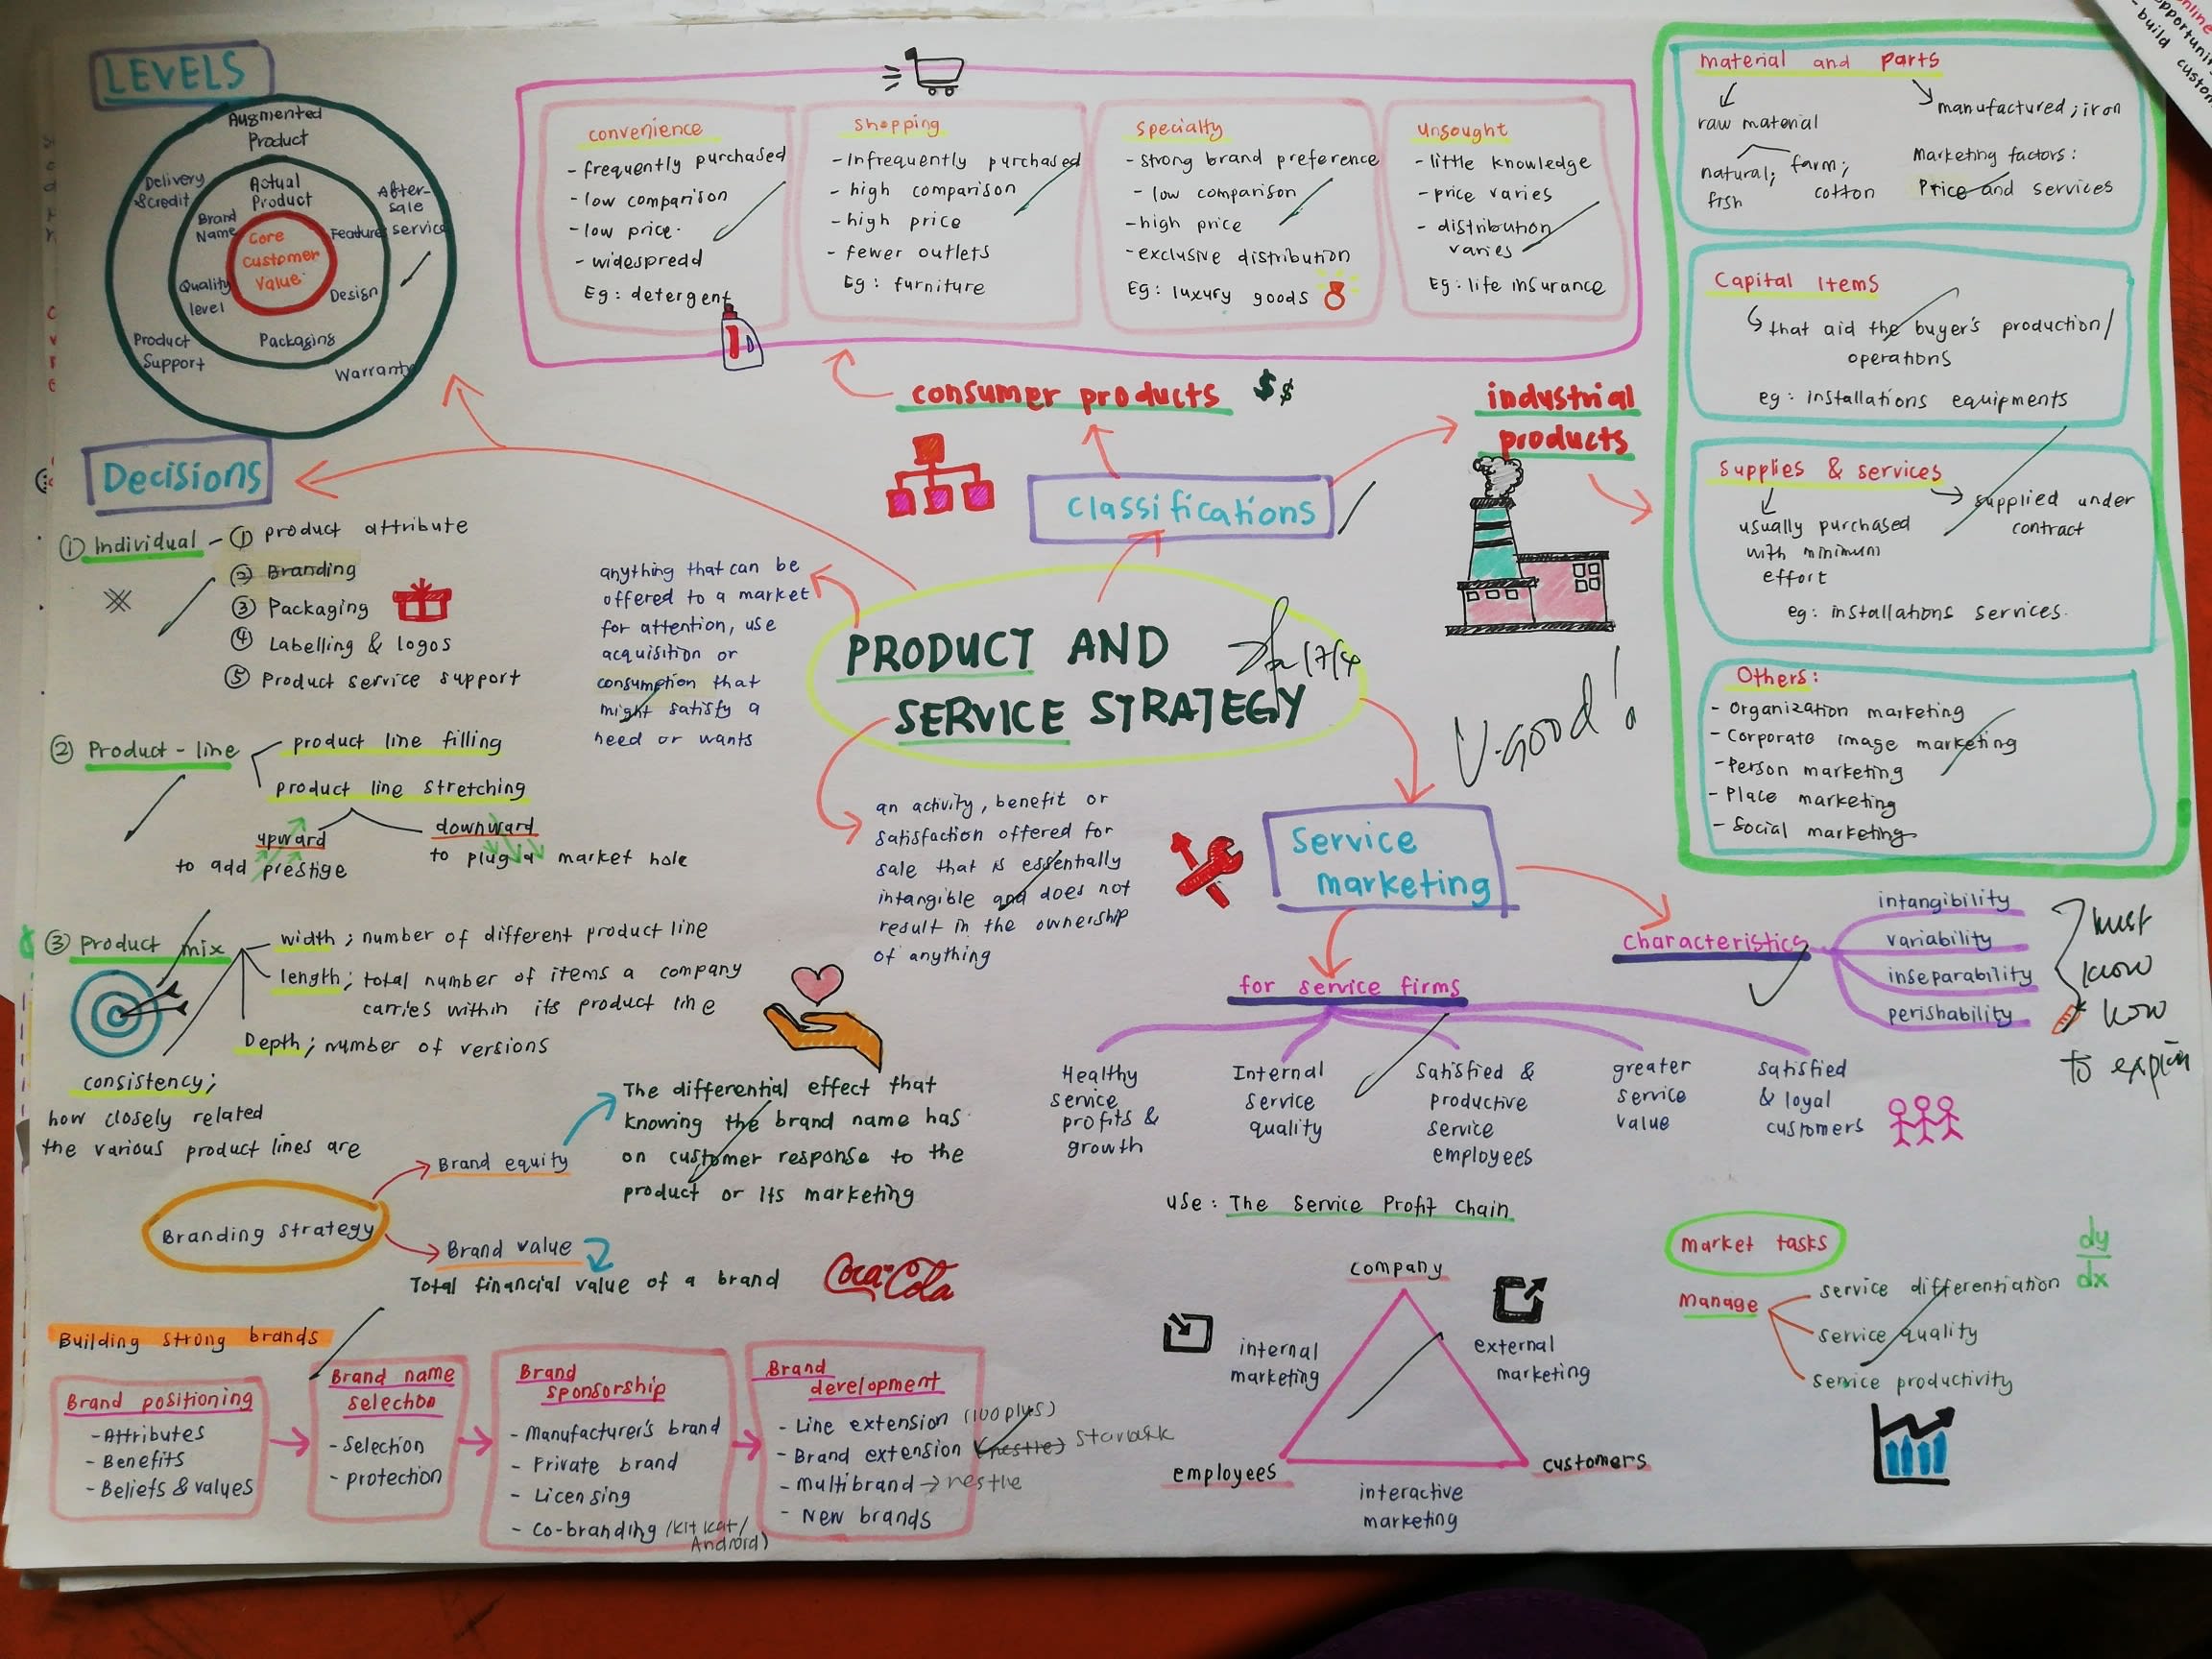 LEVELS
Augmented
Product
Delivery
& credit
After-
sale
service
Actual
Product
Brand
Name
Features
Core
customer
value
Quality
level
Design
Packaging
Product
Support
Warranty
convenience
- frequently purchased
- low comparison
- low price
- widespredd
Eg: detergent
Shopping
- Infrequently purchased
- high comparison
- high price
- fewer outlets
Eg: furniture
specialty
- strong brand preference
- low comparison
- high price
- exclusive distribution
Eg: luxury goods
unsought
- little knowledge
- price varies
- distribution
varies
Eg: life insurance
consumer products $$
industrial
products
classifications
material and parts
raw material
manufactured; iron
natural;
fish
farm;
cotton
Marketing factors:
Price and services
Capital Items
that aid the buyer's production/
operations
eg: installations equipments
Supplies & services
usually purchased
with minimum
effort
supplied under
contract
eg: installations services.
Others:
- Organization marketing
- Corporate image marketing
- Person marketing
- Place marketing
- Social marketing
Decisions
① Individual - ① product attribute
② Branding
③ Packaging
④ Labelling & logos
⑤ Product service support
② Product-line
product line filling
product line stretching
upward
to add prestige
downward
to plug a market hole
③ Product mix
width; number of different product line
length; total number of items a company
carries within its product line
Depth; number of versions
consistency;
how closely related
the various product lines are
anything that can be
offered to a market
for attention, use
acquisition or
consumption that
might satisfy a
need or wants
PRODUCT AND
SERVICE STRATEGY
17/4
V-Good!
an activity, benefit or
satisfaction offered for
sale that is essentially
intangible and does not
result in the ownership
of anything
Service
marketing
characteristics
intangibility
variability
inseparability
perishability
must
know
how
to explain
for service firms
Healthy
service
profits &
growth
Internal
service
quality
Satisfied &
productive
service
employees
greater
service
value
satisfied
& loyal
customers
use: The Service Profit Chain
Branding strategy
Brand equity
The differential effect that
knowing the brand name has
on customer response to the
product or its marketing
Brand value
Total financial value of a brand
Coca-Cola
Building strong brands
Brand positioning
- Attributes
- Benefits
- Beliefs & values
Brand name
selection
- Selection
- protection
Brand
sponsorship
- Manufacturer's brand
- Private brand
- Licensing
- Co-branding (kit kat/
Android)
Brand
development
- Line extension (100 plus)
- Brand extension (nestle)
- Multibrand → nestle
- New brands
company
internal
marketing
external
marketing
employees
customers
interactive
marketing
market tasks
Manage
service differentiation
service quality
service productivity
dy
dx
build